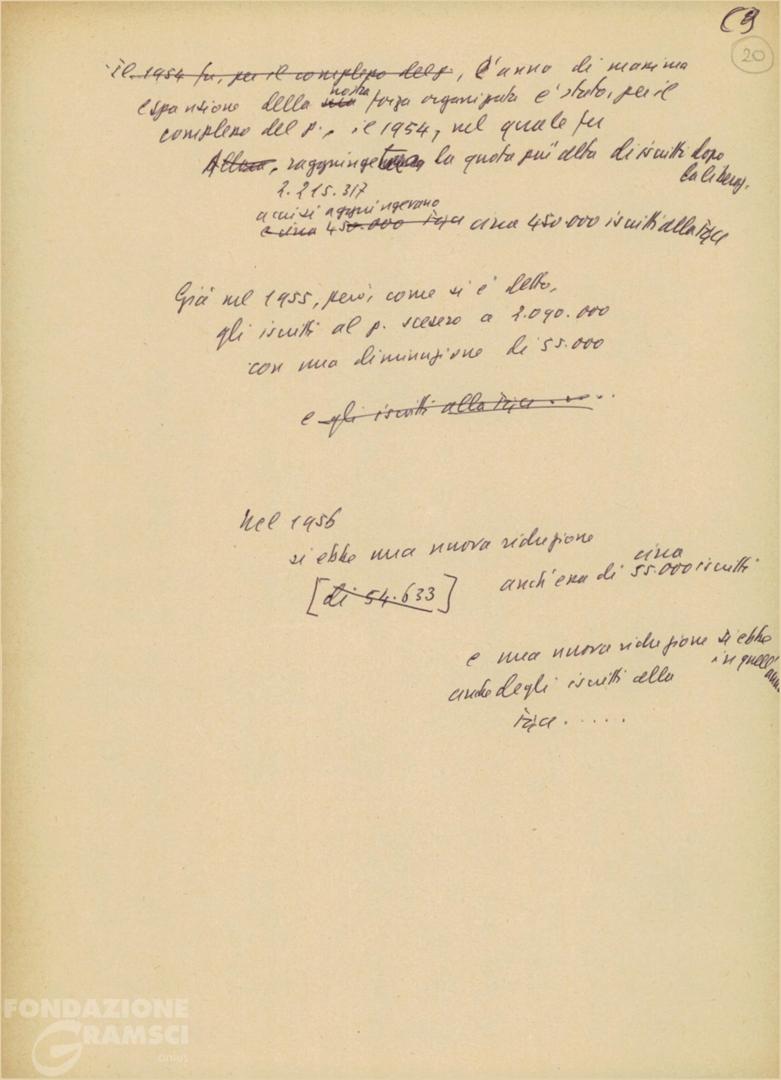 (9
20
il 1954 fu, per il complesso del p., L'anno di massima
nostra
espansione della sua forza organizzata è stato, per il
complesso del p., il 1954, nel quale fu
Allora, raggiunge la quota più alta di iscritti dopo
la liberaz.
2.215.317
a cui si aggiungevano
e circa 450.000 FGC circa 450.000 iscritti alla FGC
Già nel 1955, però, come si è detto,
gli iscritti al p. scesero a 2.090.000
con una diminuzione di 55.000
e gli iscritti alla FGC .....
Nel 1956
si ebbe una nuova riduzione
circa
[di 54.633] anch'essa di 55.000 iscritti
e una nuova riduzione si ebbe
in quell'anno
anche degli iscritti alla
FGC .....
FONDAZIONE
GRAMSCI
onlus